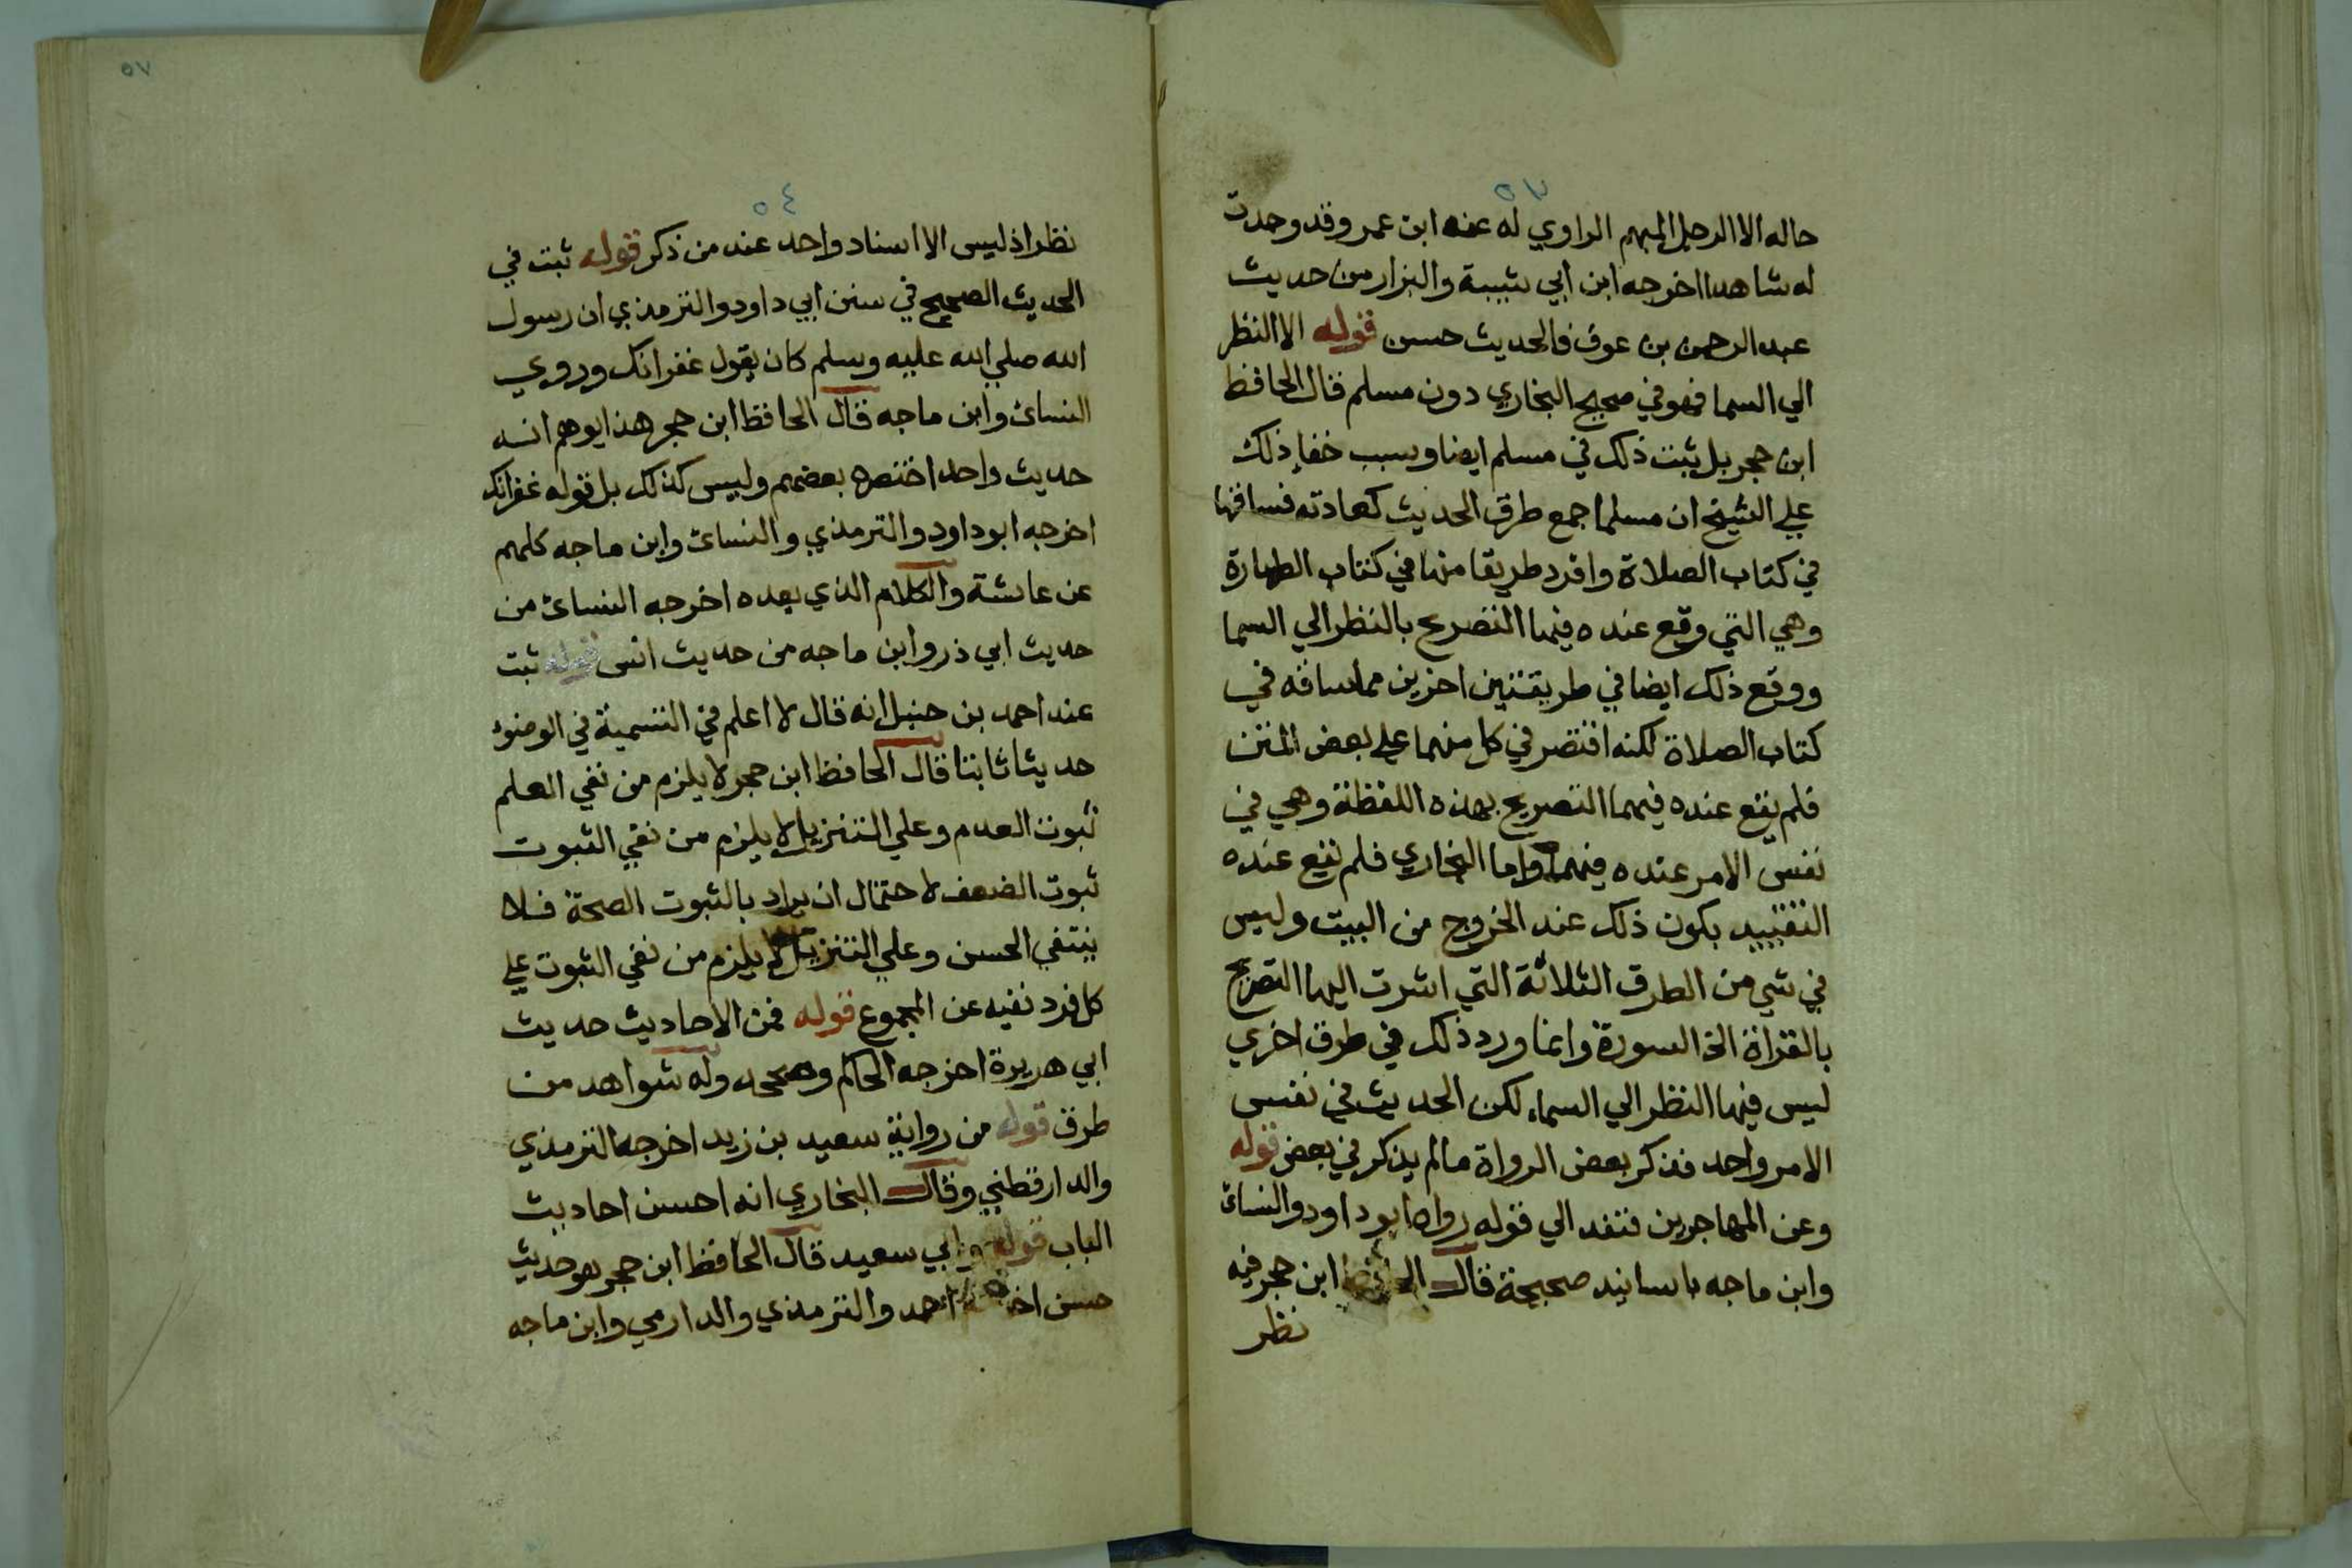 ٥٧
حاله الا الرجل المبهم الراوي له عنه ابن عمر وقد وجدت
له شاهدا اخرجه ابن ابي شيبة والبزار من حديث
عبد الرحمن بن عوف فالحديث حسن قوله الا النظر
الي السما فهو في صحيح البخاري دون مسلم قال الحافظ
ابن حجر بل ثبت ذلك في مسلم ايضا وسبب خفاء ذلك
علي الشيخ ان مسلما جمع طرق الحديث كعادته فساقها
في كتاب الصلاة وافرد طريقا منها في كتاب الطهارة
وهي التي وقع عنده فيها التصريح بالنظر الي السما
ووقع ذلك ايضا في طريقتين اخرين مما ساقه في
كتاب الصلاة لكنه اقتصر في كل منهما علي بعض المتن
فلم يقع عنده فيهما التصريح بهذه اللفظة وهي في
نفس الامر عنده فيهما واما البخاري فلم يقع عنده
التقييد بكون ذلك عند الخروج من البيت وليس
في شي من الطرق الثلاثة التي اشرت اليها التصريح
بالقراة الخ السورة وانما ورد ذلك في طرق اخري
ليس فيها النظر الي السماء لكن الحديث في نفس
الامر واحد فذكر بعض الرواة مالم يذكر في بعض قوله
وعن المهاجرين قنفد الي قوله رواه ابو داود والنسائ
وابن ماجه باسانيد صحيحة قال الحافظ ابن حجر فيه
نظر
٥٧
٥٤
نظر اذ ليس الا اسناد واحد عند من ذكر قوله ثبت في
الحديث الصحيح في سنن ابي داود والترمذي ان رسول
الله صلي الله عليه وسلم كان يقول غفرانك وروي
النسائ وابن ماجه قال الحافظ ابن حجر هذا يوهم انه
حديث واحد اختصره بعضهم وليس كذلك بل قوله غفرانك
اخرجه ابو داود والترمذي والنسائ وابن ماجه كلهم
عن عائشة والكلام الذي بعده اخرجه النسائ من
حديث ابي ذر وابن ماجه من حديث انس قوله ثبت
عند احمد بن حنبل انه قال لا اعلم في التسمية في الوضوء
حديثا ثابتا قال الحافظ ابن حجر لا يلزم من نفي العلم
ثبوت العدم وعلي التنزيل لا يلزم من نفي الثبوت
ثبوت الضعف لاحتمال ان يراد بالثبوت الصحة فلا
ينتفي الحسن وعلي التنزيل لا يلزم من نفي الثبوت علي
كل فرد نفيه عن المجموع قوله فمن الاحاديث حديث
ابي هريرة اخرجه الحاكم وصححه وله شواهد من
طرق قوله من رواية سعيد بن زيد اخرجه الترمذي
والدارقطني وقال البخاري انه احسن احاديث
الباب قوله وابي سعيد قال الحافظ ابن حجر هو حديث
حسن اخرجه احمد والترمذي والدارمي وابن ماجه